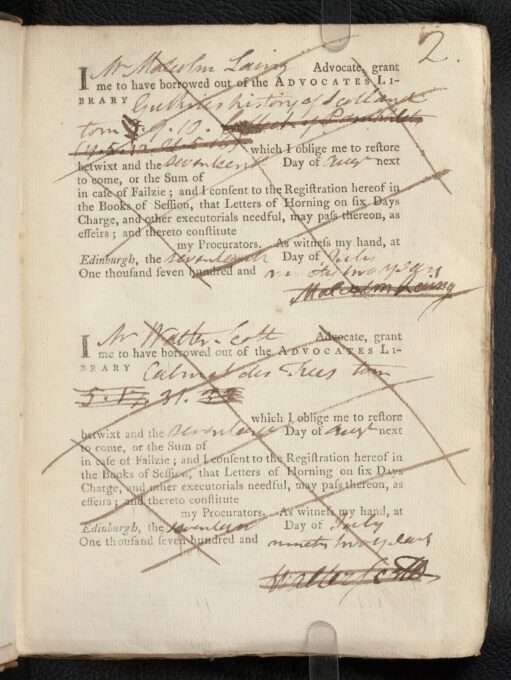 2.
I Mr Malcolm Laing Advocate, grant
me to have borrowed out of the ADVOCATES LI-
BRARY Guthries history of Scotland
tom 9. 10.
which I oblige me to restore
betwixt and the seventeent Day of augt next
to come, or the Sum of
in case of Failzie; and I consent to the Registration hereof in
the Books of Session, that Letters of Horning on six Days
Charge, and other executorials needful, may pass thereon, as
effeirs; and thereto constitute
my Procurators. As witness my hand, at
Edinburgh, the seventeenth Day of July
One thousand seven hundred and ninety two years
Malcolm Laing
I Mr Walter Scott Advocate, grant
me to have borrowed out of the ADVOCATES LI-
BRARY Cabinet des Fees tom
5. 17. 31.
which I oblige me to restore
betwixt and the Day of augt next
to come, or the Sum of
in case of Failzie; and I consent to the Registration hereof in
the Books of Session, that Letters of Horning on six Days
Charge, and other executorials needful, may pass thereon, as
effeirs; and thereto constitute
my Procurators. As witness my hand, at
Edinburgh, the Day of July
One thousand seven hundred and ninety two years
Walter Scott